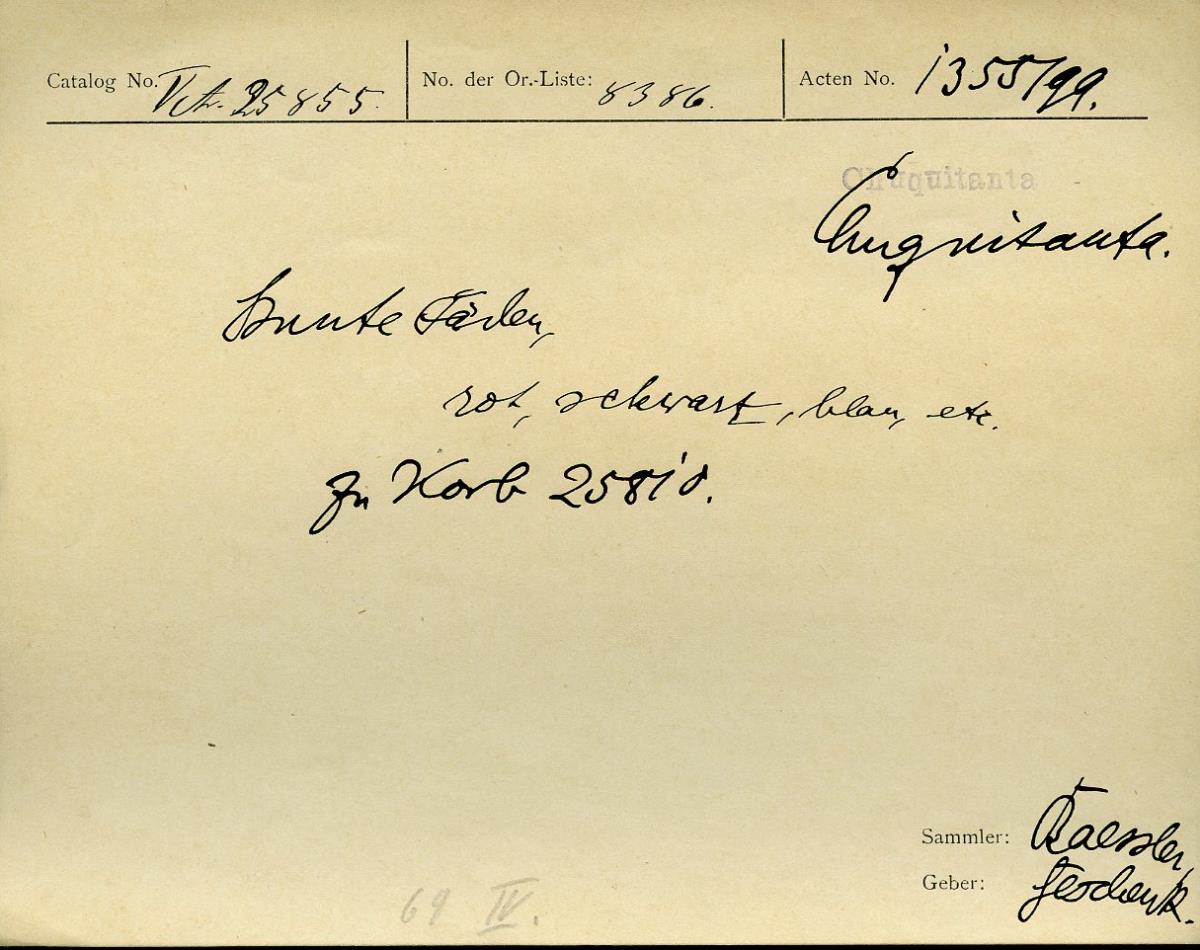 Catalog No. VA. 25855. No. der Or.-Liste: 8386. Acten No. 1355/99.
Chuquitanta
Chuquitanta.
Bunte Fäden,
rot, schwarz, blau, etc.
zu Korb 25810.
Sammler: Baessler,
Geber: Geschenk.
69 IV.